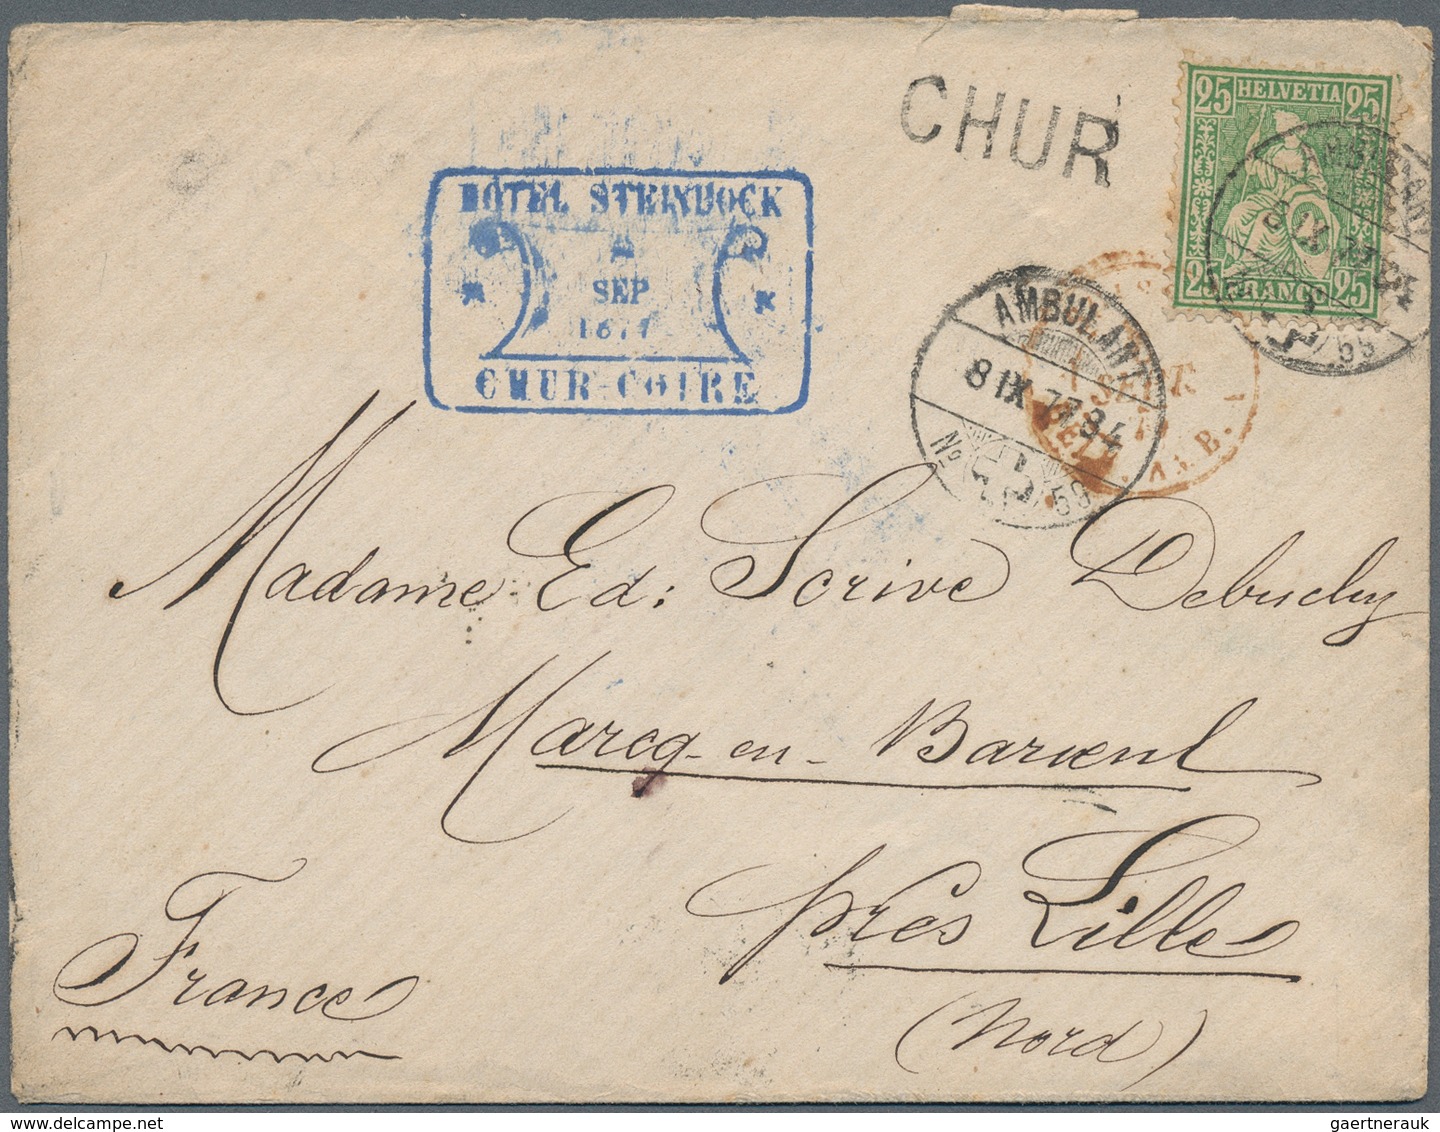 CHUR
25 HELVETIA 25
25 FRANCO 25
HOTEL STEINBOCK
SEP
CHUR-COIRE
AMBULANT
8 IX 77
No 59
AMBULANT
8 IX 77
59
Madame Ed: Scrive Debuchy
Marcq-en-Barœul
près Lille
(Nord)
France
gaertnerauk